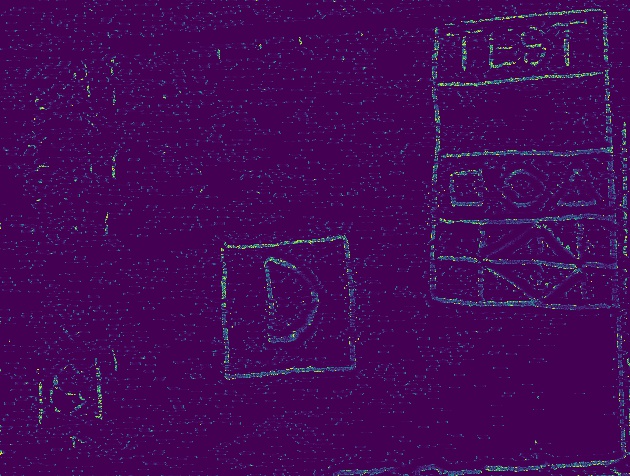 TEST
D